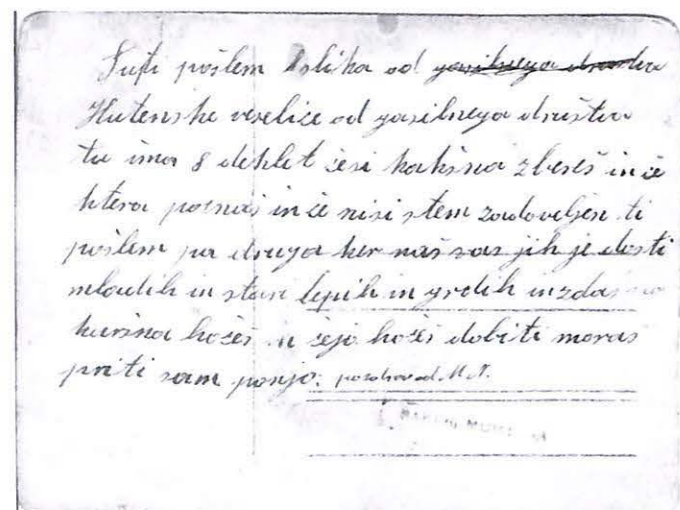 Tuki pošlem 1 slika od gasilnega drustva
Hutenske veselice od gasilnega društva
tu ima 8 deklet česi kakšna zbereš in če
ktera poznaš in če nisi s tem zadovoljen ti
pošlem pa druga ker naš vas jih je dosti
mladih in stari lepih in grdih in
kakšna hočeš in čejo hočeš dobiti moraš
priti sam ponjo. pozdrav od M. N.